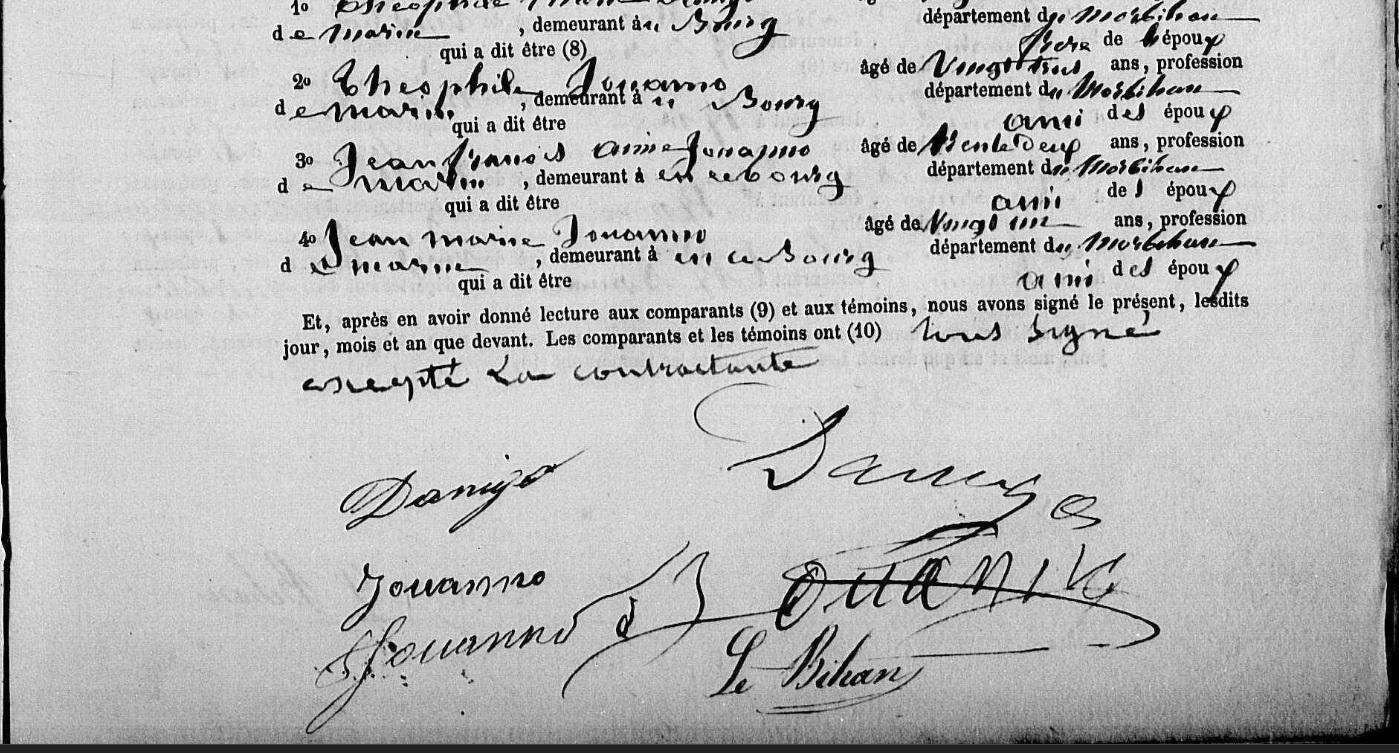 1o Théophile Marie Danigo
de marin , demeurant à en Bourg département du Morbihan
qui a dit être (8) frere de l'époux
2o Théophile Jouanno âgé de Vingt trois ans, profession
de marin , demeurant à en Bourg département du Morbihan
qui a dit être ami des époux
3o Jean françois aimé Jouanno âgé de trente deux ans, profession
de marin , demeurant à en ce bourg département du Morbihan
qui a dit être ami des époux
4o Jean marie Jouanno âgé de Vingt un ans, profession
de marin , demeurant à en ce Bourg département du Morbihan
qui a dit être ami des époux
Et, après en avoir donné lecture aux comparants (9) et aux témoins, nous avons signé le présent, lesdits
jour, mois et an que devant. Les comparants et les témoins ont (10) tous Signé
excepté La contractante
Danigo Danigo
Jouanno
Jouanno
Le Bihan